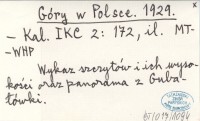 Góry w Polsce. 1929.
– Kal. IKC 2: 172, il. MT-
-WHP
Wykaz szczytów i ich wyso-
kości oraz panorama z Guba-
łówki.